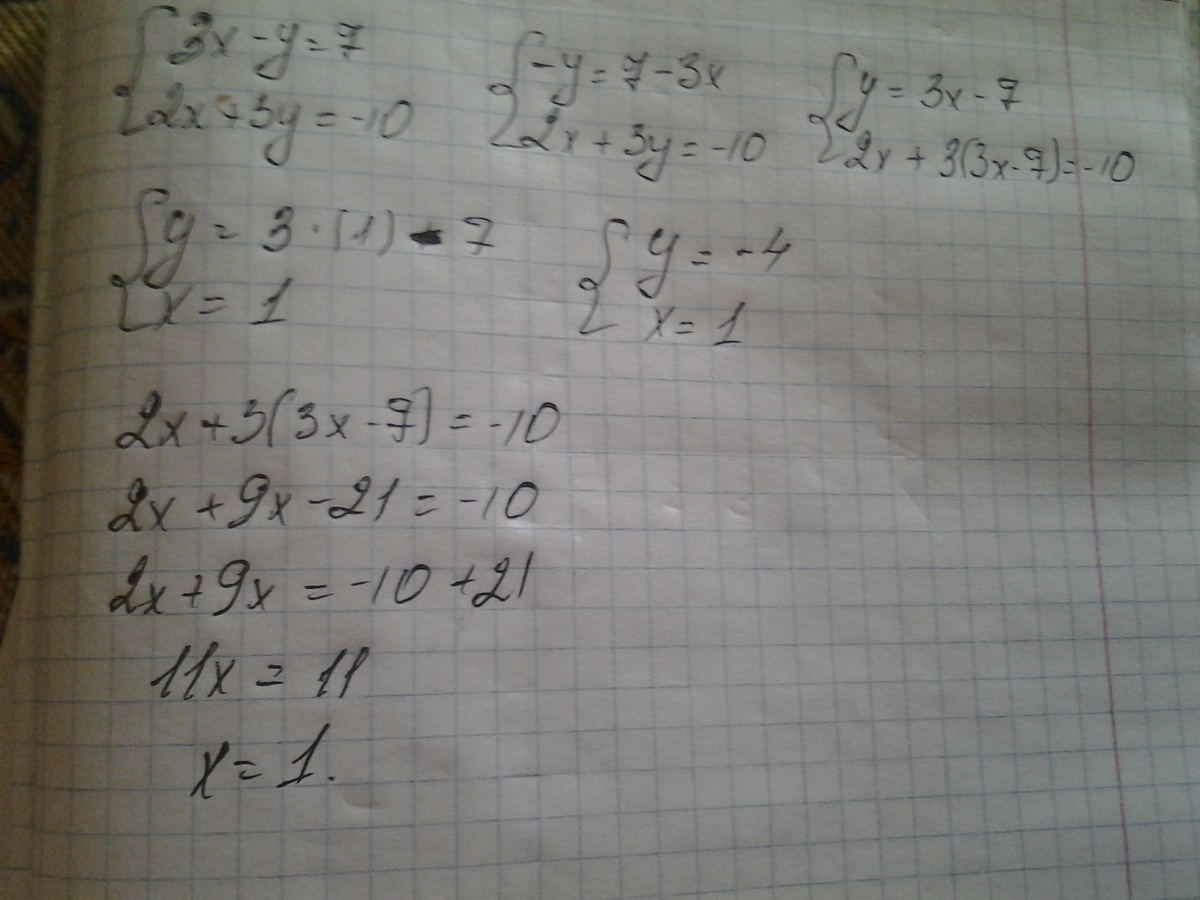 {3x-y=7
2x+3y=-10
{-y=7-3x
2x+3y=-10
{y=3x-7
2x+3(3x-7)=-10
{y=3·(1)-7
x=1
{y=-4
x=1
2x+3(3x-7)=-10
2x+9x-21=-10
2x+9x=-10+21
11x=11
x=1.